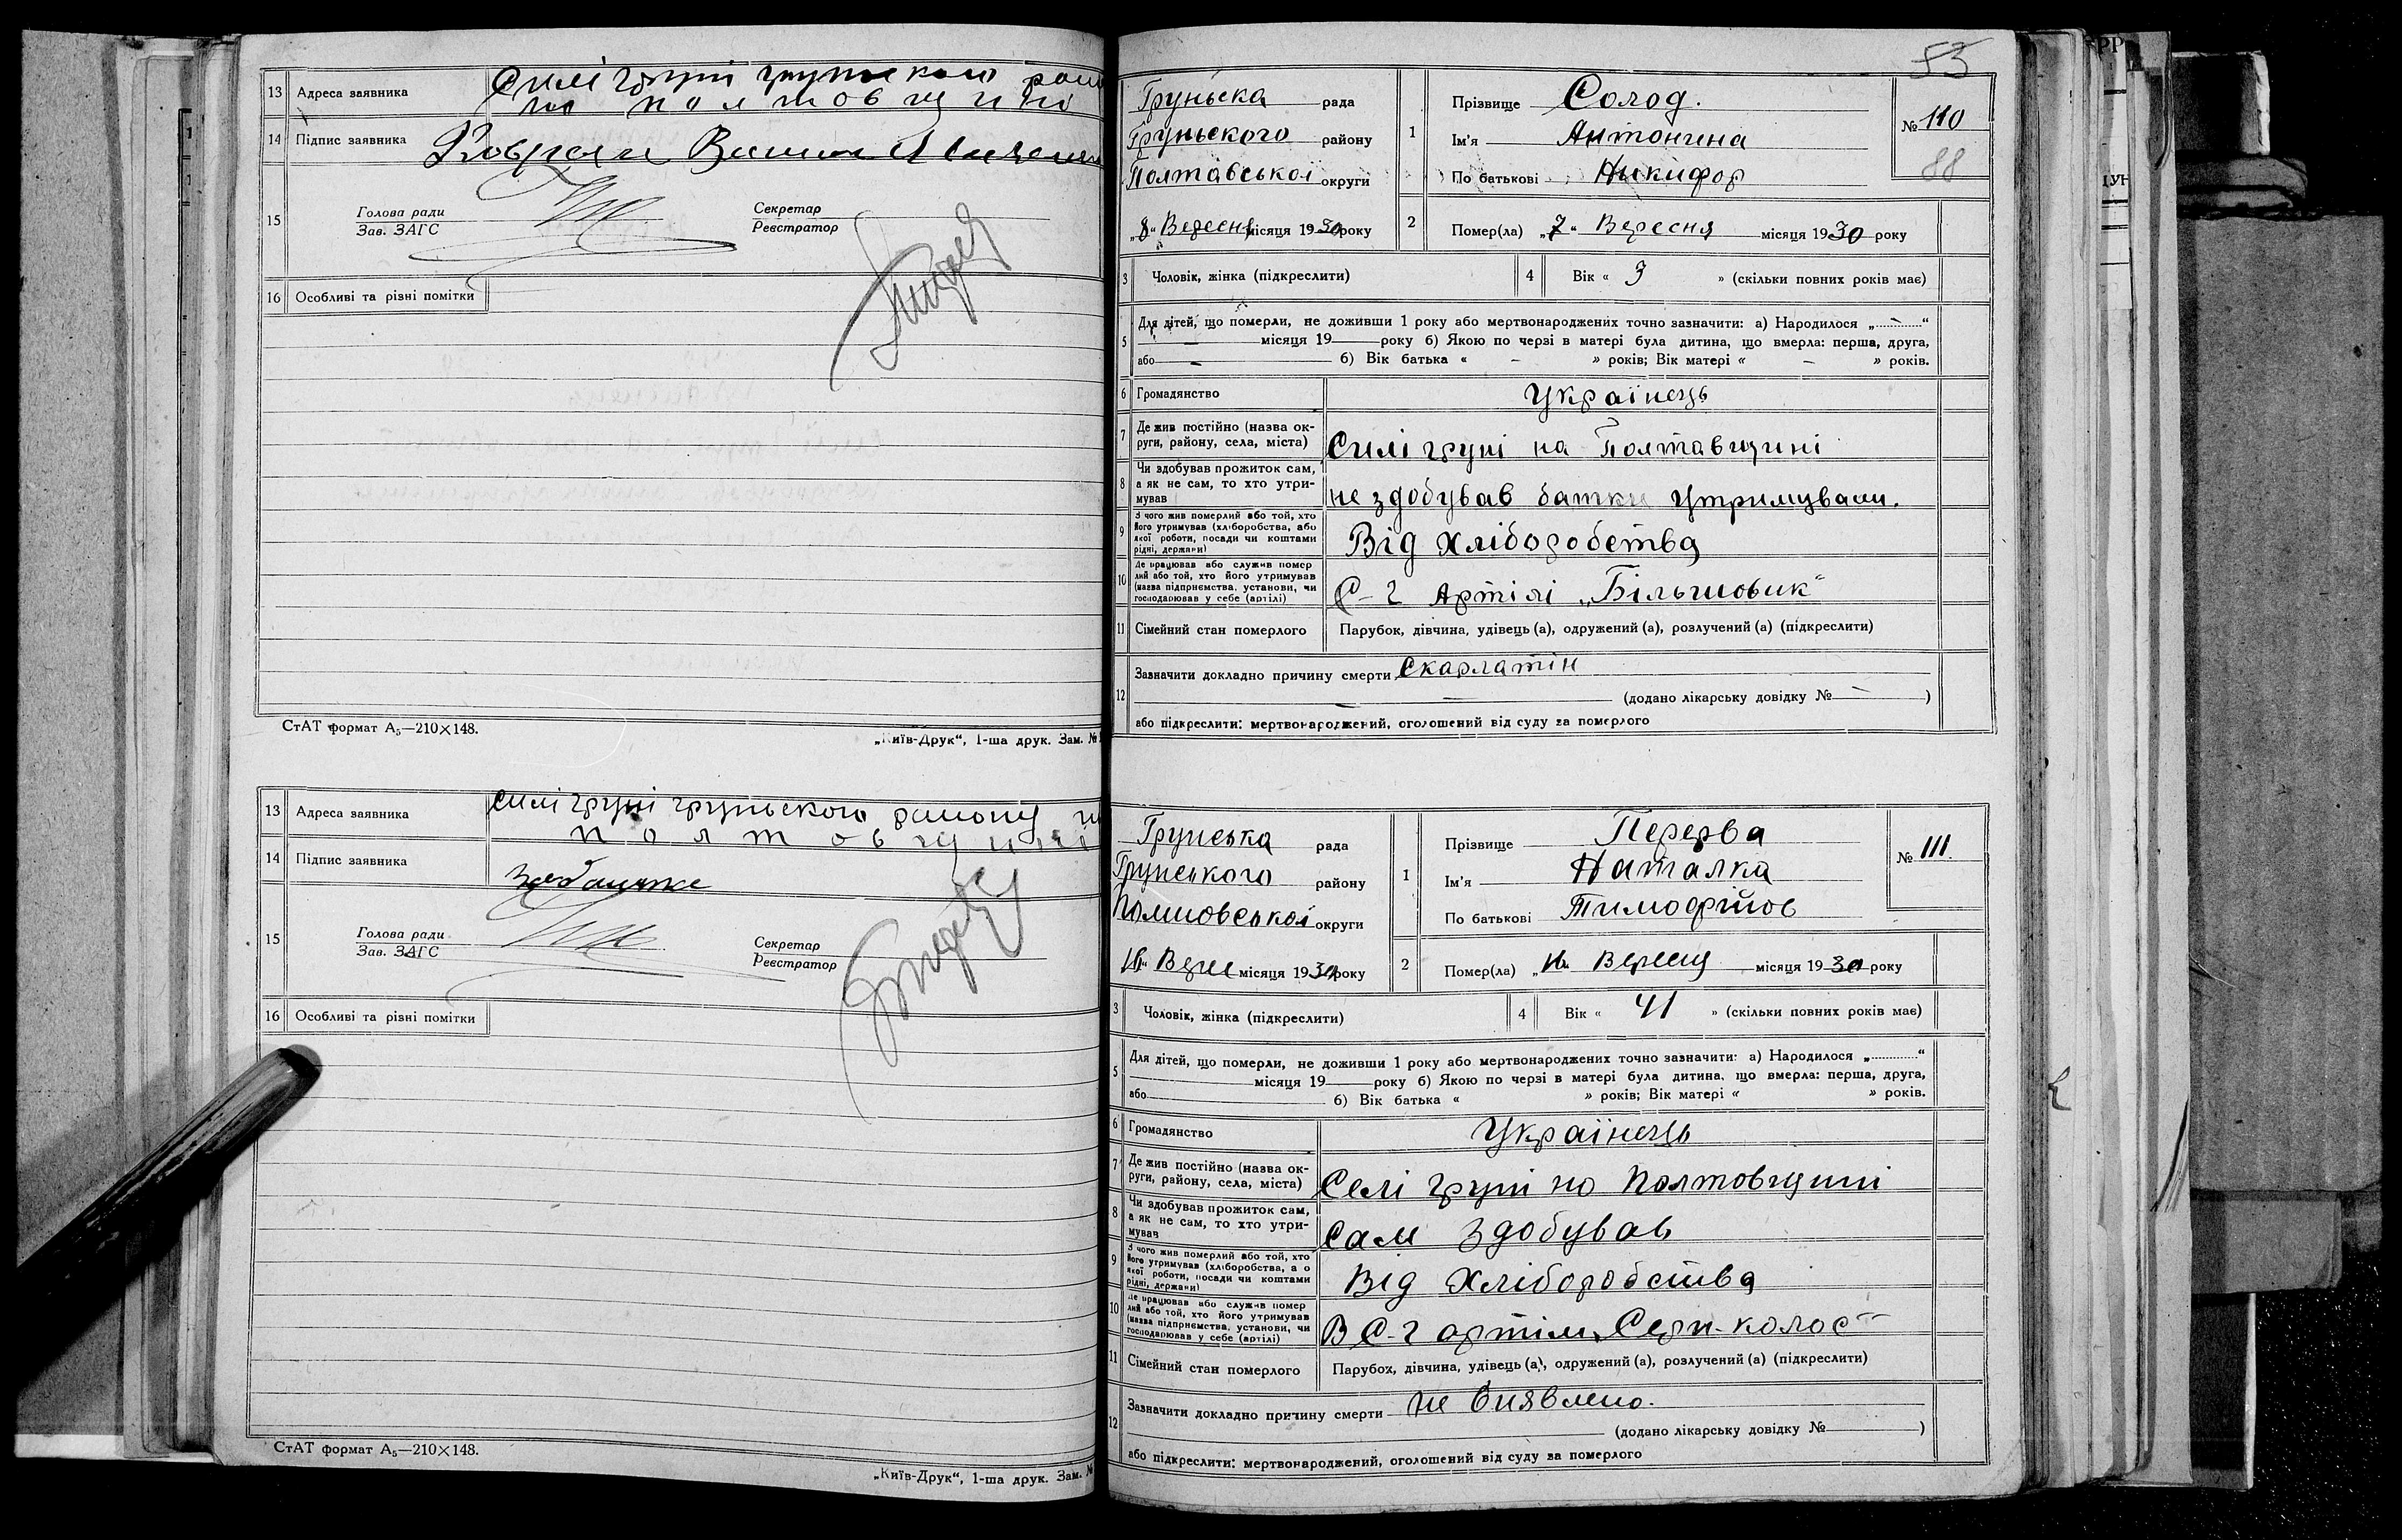 13 Адреса заявника Силі груні груньского
на полтовщині
14 Підпис заявника
15 Голова ради
Зав. ЗАГС
Секретар
Реєстратор
16 Особливі та різні помітки
СтАТ формат А₅—210×148.
„Київ-Друк“, 1-ша друк. Зам. №
13 Адреса заявника силі груні груньского району
полтовщині
14 Підпис заявника
15 Голова ради
Зав. ЗАГС
Секретар
Реєстратор
16 Особливі та різні помітки
СтАТ формат А₅—210×148.
„Київ-Друк“, 1-ша друк. Зам. №
53
Груньска рада
Груньского району
Полтавської округи
„8“ Вересня місяця 1930 року
1 Прізвище Солод.
Ім'я Антонина
По батькові Никифор
№ 110
88
2 Помер(ла) „7“ Вересня місяця 1930 року
3 Чоловік, жінка (підкреслити)
4 Вік « 3 » (скільки повних років має)
5 Для дітей, що померли, не доживши 1 року або мертвонароджених точно зазначити: а) Народилося „ — “
— місяця 19 року б) Якою по черзі в матері була дитина, що вмерла: перша, друга,
або — б) Вік батька « – » років; Вік матері « – » років.
6 Громадянство Українець
7 Де жив постійно (назва ок-
руги, району, села, міста) Силі груні на Полтавщині
8 Чи здобував прожиток сам,
а як не сам, то хто утри-
мував не здобував батки утримували.
9 З чого жив померлий або той, хто
його утримував (хліборобства, або
якої роботи, посади чи коштами
рідні, держави) Від хлібособства
10 Де працював або служив помер
лий або той, хто його утримував
(назва підприємства, установи, чи
господарював у себе (артілі) С-г Артілі „Більшовик“
11 Сімейний стан померлого Парубок, дівчина, удівець (а), одружений (а), розлучений (а) (підкреслити)
12 Зазначити докладно причину смерти Скарлатін
— (додано лікарську довідку № — )
або підкреслити: мертвонароджений, оголошений від суду за померлого
Грунська рада
Грунського району
округи
місяця 1930 року
1 Прізвище Перерва
Ім'я Наталка
По батькові Тимофійов
№ 111.
2 Помер(ла) Вересня місяця 1930 року
3 Чоловік, жінка (підкреслити)
4 Вік « 41 » (скільки повних років має)
5 Для дітей, що померли, не доживши 1 року або мертвонароджених точно зазначити: а) Народилося „ “
місяця 19 року б) Якою по черзі в матері була дитина, що вмерла: перша, друга,
або б) Вік батька « » років; Вік матері « » років.
6 Громадянство Українець
7 Де жив постійно (назва ок-
руги, району, села, міста) Селі груні но Полтовщині
8 Чи здобував прожиток сам,
а як не сам, то хто утри-
мував Сам здобував
9 З чого жив померлий або той, хто
його утримував (хліборобства, а о
якої роботи, посади чи коштами
рідні, держави) Від хліборобства
10 Де працював або служив помер
лий або той, хто його утримував
(назва підприємства, установи, чи
господарював у себе (артілі) В С-г артіли „Серп-колос“
11 Сімейний стан померлого Парубок, дівчина, удівець (а), одружений (а), розлучений (а) (підкреслити)
12 Зазначити докладно причину смерти не виявлено.
(додано лікарську довідку № )
або підкреслити: мертвонароджений, оголошений від суду за померлого